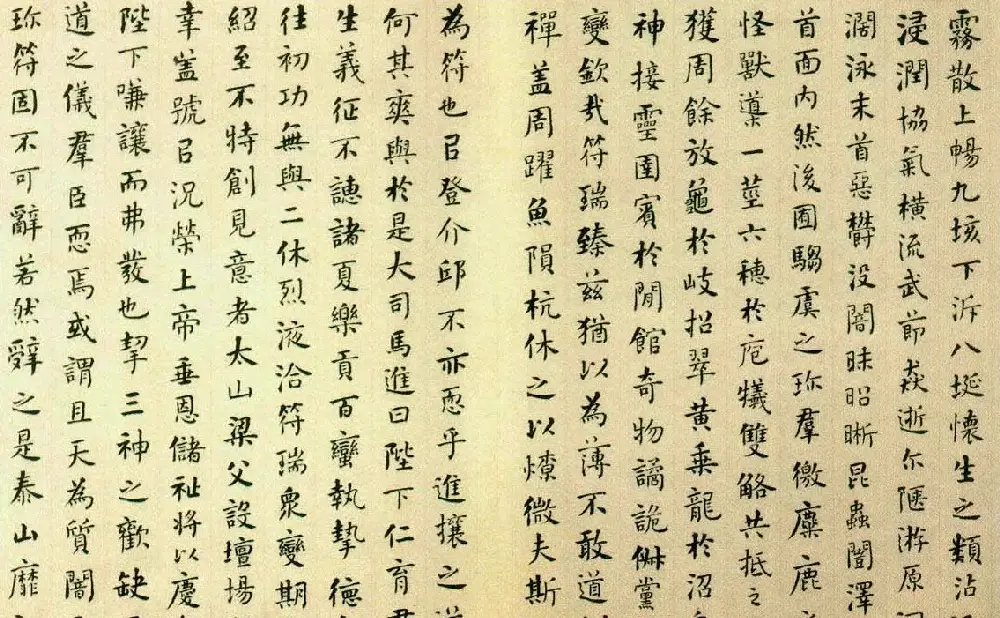 霧散上暢九垓下泝八埏懷生之類沾
浸潤協氣橫流武節焱逝尒陿游原
濶泳末首惡欝没闇昧昭晣昆蟲闓澤
首面内然後囿騶虞之珎羣徼麋鹿
怪獸䆃一莖六穗於庖犧雙觡共抵之
獲周餘放龜於岐招翠黄乗龍於沼
神接靈圉賓於閒館奇物譎詭俶黨
變欽㦲符瑞臻茲猶以為薄不敢道
禪盖周躍魚隕杭休之以燎微夫斯
為符也㠯登介邱不亦恧乎進攘之
何其爽與於是大司馬進曰陛下仁育
生義征不譓諸夏樂貢百蠻執摯德
往初功無與二休烈液洽符瑞衆變期
紹至不特創見意者太山梁父設壇場
幸盖號㠯况榮上帝垂恩儲祉將以慶
陛下嗛讓而弗發也挈三神之歡缺
道之儀羣臣恧焉或謂且天為質闇
珎符固不可辭若然辤之是泰山靡